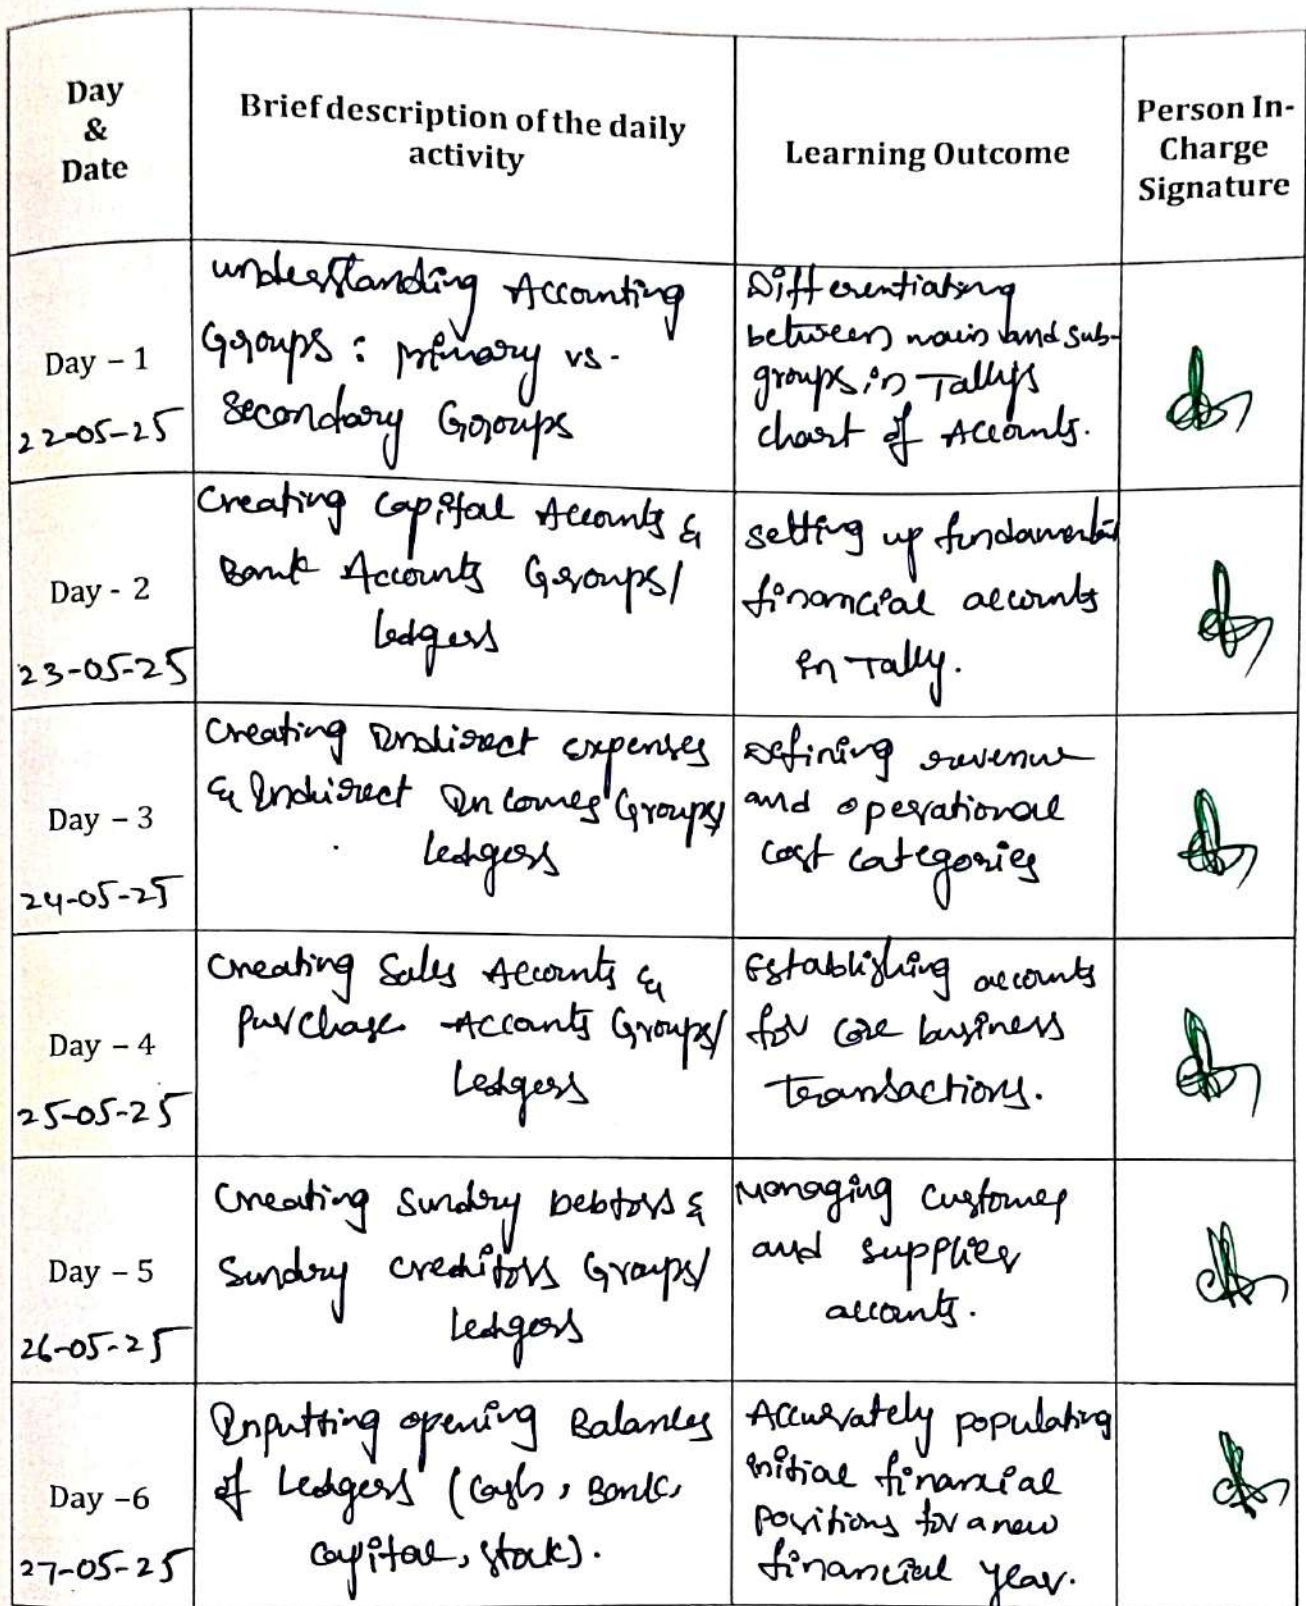 Day
&
Date
Brief description of the daily
activity
Learning Outcome
Person In-
Charge
Signature
Day – 1
22-05-25
understanding Accounting
Groups : primary vs.
Secondary Groups
Differentiating
between main and sub-
groups in Tally's
chart of Accounts.
Day - 2
23-05-25
Creating Capital Accounts &
Bank Accounts Groups/
ledgers
setting up fundamental
financial accounts
in Tally.
Day – 3
24-05-25
Creating Indirect expenses
& Indirect Incomes Groups/
ledgers
Defining revenue
and operational
cost categories
Day – 4
25-05-25
Creating Sales Accounts &
purchase Accounts Groups/
Ledgers
Establishing accounts
for core business
transactions.
Day – 5
26-05-25
Creating Sundry Debtors &
Sundry creditors Groups/
Ledgers
Managing customer
and supplier
accounts.
Day –6
27-05-25
Inputting opening Balances
of Ledgers (Cash, Bank,
capital, stock).
Accurately populating
initial financial
positions for a new
financial year.